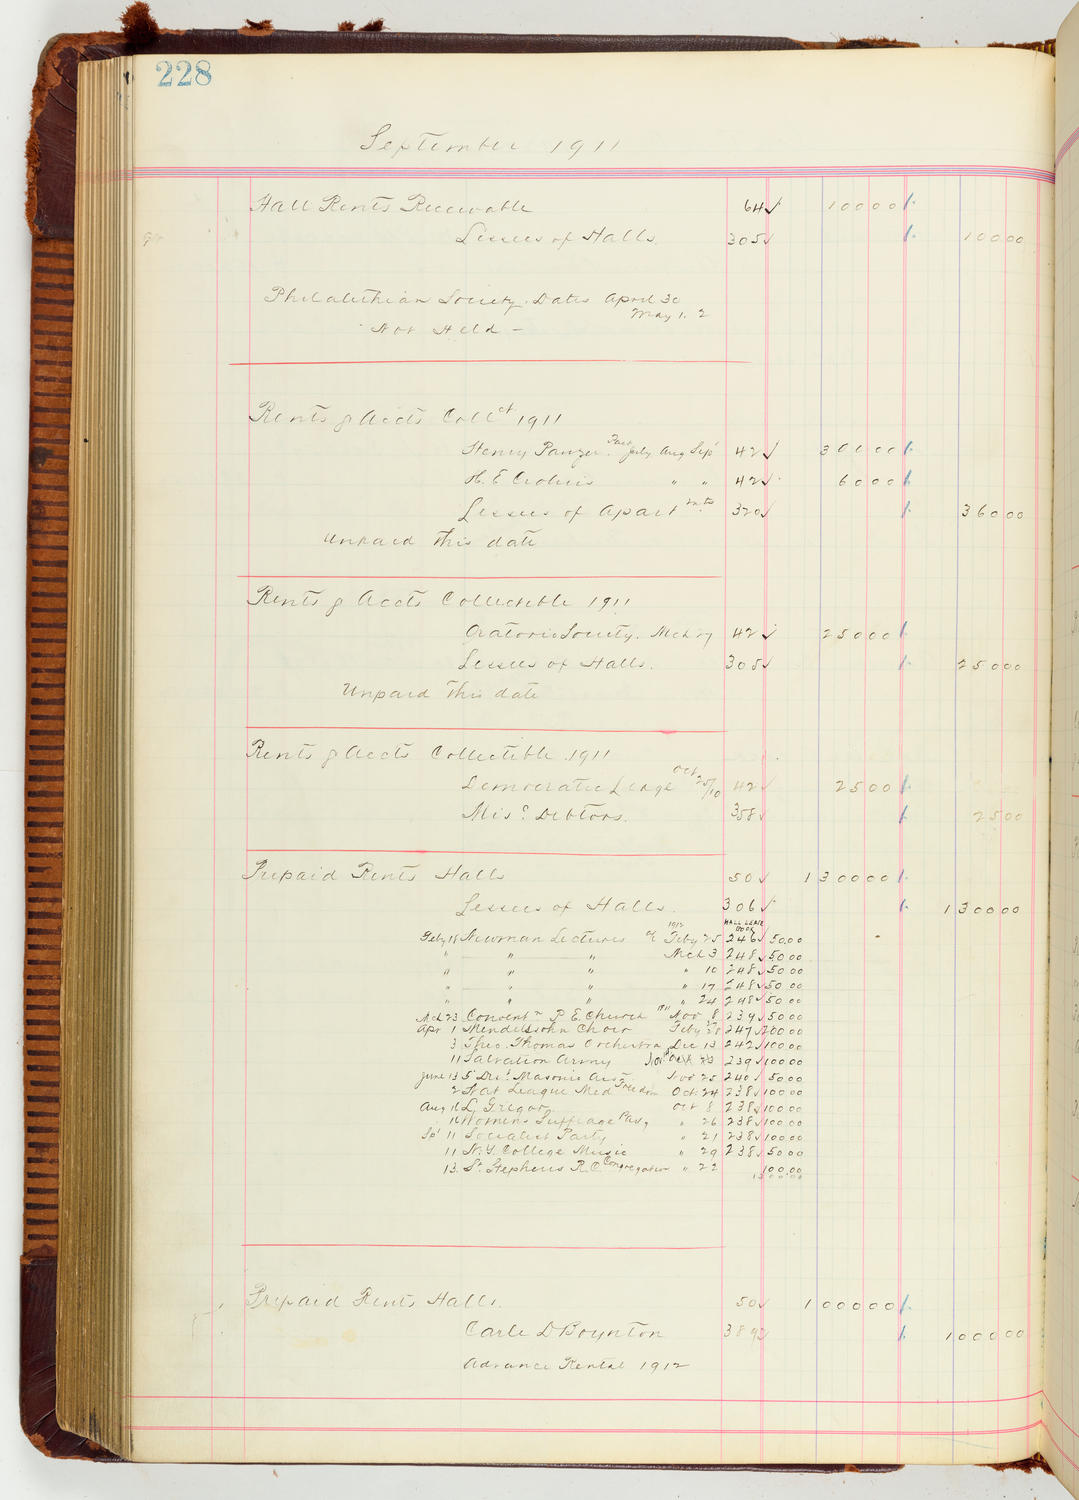 228
September 1911
Hall Rents Receivable 64 ✓ 100 00
Lessees of Halls. 305 ✓ 100 00
Philalethian Society. Dates April 30
May 1. 2
Not Held —
Rents & Accts Coll ct 1911
Henry Panzer. Part July Aug Sep 42 ✓ 300 00
42 ✓ 60 00
Lessees of Apart mts 320 ✓ 360 00
Unpaid this date
Rents & Accts Collectible 1911
Oratorio Society. Mch 27 42 ✓ 250 00
Lessees of Halls. 305 ✓ 250 00
Unpaid this date
Rents & Accts Collectible 1911
Democratic Leage Oct 25/10 42 ✓ 25 00
Mis. Debtors. 358 ✓ 25 00
Prepaid Rents Halls 50 ✓ 1300 00
Lessees of Halls. 306 ✓ 1300 00
1912 HALL LEASE BOOK
Feby 18 Newman Lectures Feby 25 246 ✓ 50.00
" " " Mch 3 248 ✓ 50 00
" " " " 10 248 ✓ 50 00
" " " " 17 248 ✓ 50 00
" " " " 24 248 ✓ 50 00
Mch 23 Convent n P. E. Church 1911 Nov 8 239 ✓ 50 00
Apr 1 Mendelssohn Choir Feby 27/28 247 ✓ 200 00
3 Theo. Thomas Orchestra Dec 13 242 ✓ 100 00
11 Salvation Army 239 ✓ 100 00
June 13 5" Dist Masonic Nov 25 240 ✓ 50 00
2 Nat League Med Freedom Oct. 24 238 ✓ 100 00
Aug 16 L. Gregor Oct 8 238 ✓ 100 00
16 Womens Suffrage Pary " 26 238 ✓ 100 00
Sp' 11 Socialist Party " 21 238 ✓ 100 00
11 N. Y. College Music " 29 238 ✓ 50 00
13. St. Stephens R. C. Congregation " 22 100.00
1300 00
Prepaid Rents Halls. 50 ✓ 1000 00
Carle D Boynton 389 ✓ 1000 00
Advance Rental 1912